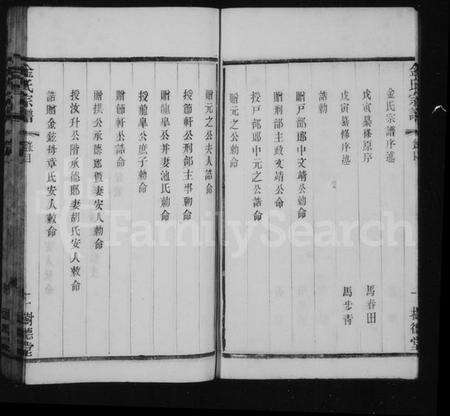 金氏宗譜序述
戊寅纂修原序 馬春田
戊寅纂修序述 馬步青
誥勅
贈戶部郎中文靖公勅命
贈刑部主政文靖公命
授戶部郎中元之公誥命
贈元之公命
贈元之公夫人誥命
授節軒公刑部主事勅命
贈龍皐公并妻池氏勅命
授龍皐公庶子勅命
贈節軒公誥命
贈撰公承德郎暨妻安人敕命
授汝升公階承德郎妻胡氏安人敕命
誥贈金鉉母章氏安人敕命
金氏宗譜
樹德堂
金氏宗譜
樹德堂
FamilySearch